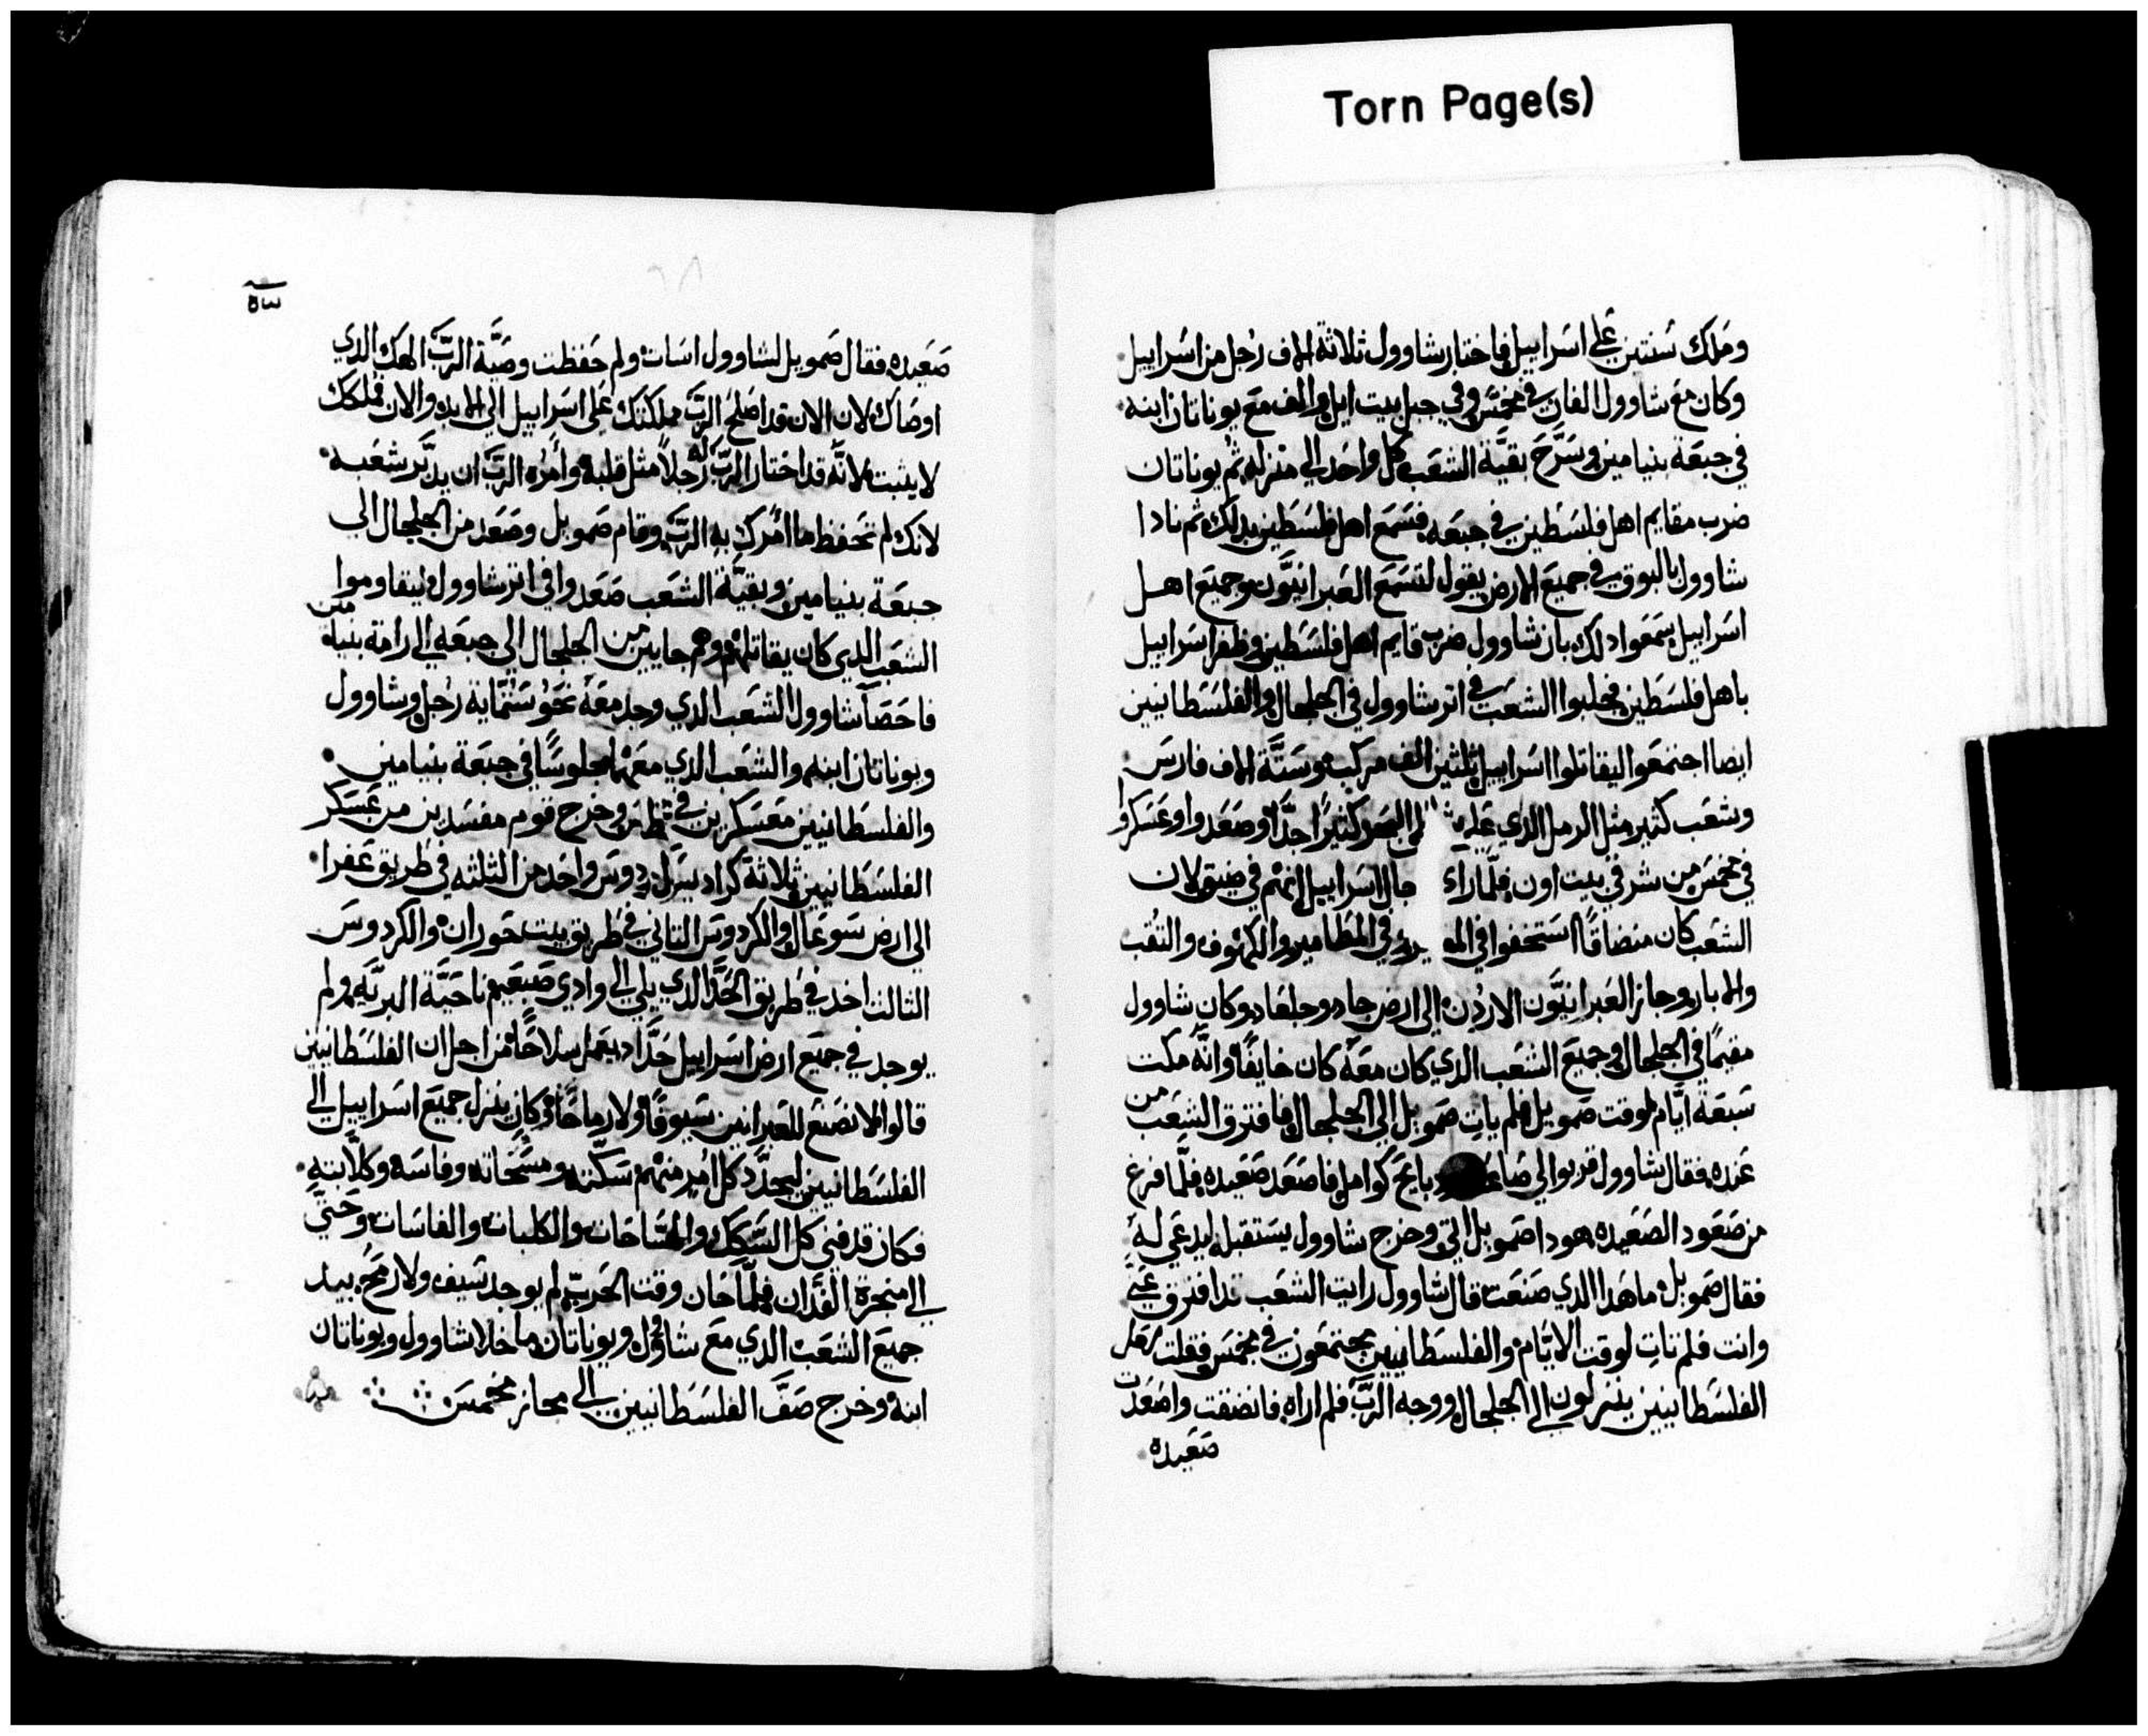 Torn Page(s)
وملك سنتين على اسراييل فاختار شاوول ثلاثة الاف رجل من اسراييل
وكان مع شاوول الفان في مخمس وفي جبل بيت ايل والف مع يوناتان ابنه
في جبعة بنيامين وسرح بقية الشعب كل واحد الى منزله ثم يوناتان
ضرب مقايم اهل فلسطين في جبعه فسمع اهل فلسطين بدلك ثم نادا
شاوول بالبوق في جميع الارض يقول لتسمع العبرانيون وجميع اهل
اسراييل سمعوا دلك بان شاوول ضرب قايم اهل فلسطين وظفر اسراييل
باهل فلسطين فجلبوا الشعب في اثر شاوول في الجلجال والفلسطانيين
ايضا اجتمعوا ليقاتلوا اسراييل ثلثين الف مركب وستة الاف فارس
وشعب كثير مثل الرمل الدي على البحر كثيرا جدا وصعدوا وعسكروا
في مخمس من شرقي بيت اون فلما راء جال اسراييل انهم في ضيق لان
الشعب كان منضاقا استخفوا في في المطامير والكهوف والنقب
والابار وجاز العبرانيون الاردن الى ارض جاد وجلعاد وكان شاوول
مقيما في الجلجال وجميع الشعب الدي كان معه كان خايفا وانه مكت
سبعة ايام لوقت صمويل فلم يات صمويل الى الجلجال فافترق الشعب من
عنده فقال شاوول قربوا لي كوامل فاصعد صعيده فلما فرغ
من صعود الصعيده هودا صمويل اتى وخرج شاوول يستقبله ليدعي له
فقال صمويل ما هدا الدي صنعت قال شاوول رايت الشعب قد افترق عني
وانت فلم تات لوقت الايام والفلسطانيين مجتمعون في مخمس فقلت
الفلسطانيين ينزلون الى الجلجال ووجه الرب فلم اراه فانضفت واصعدت
صعيده
٥٣
صعيده فقال صمويل لشاوول اسات ولم حفظت وصية الرب الهك الدي
اوصاك لان الان قد اصلح الرب مملكتك على اسراييل الى الابد والان فملكك
لا يثبت لانه قد اختار الرب له رجلا مثل قلبه وامره الرب ان يدبر شعبه
لانك لم تحفظ ما امرك به الرب وقام صمويل وصعد من الجلجال الى
جبعة بنيامين وبقية الشعب صعدوا في اثر شاوول ليقاوموا
الشعب الدي كان يقاتلهم وهم جايين من الجلجال الى جبعه الى رامة بنيامين
فاحصا شاوول الشعب الدي وجد معه نحو ستماية رجل وشاوول
ويوناتان ابنه والشعب الدي معهما جلوسا في جبعة بنيامين
والفلسطانيين معسكرين في وخرج قوم مفسدين من عسكر
الفلسطانيين ثلاثة كراديس كردوس واحد من الثلثه في طريق عفرا
الى ارض سوعال والكردوس الثاني في طريق بيت حوران والكردوس
الثالث اخد في طريق الحد الدي يلي الى وادي صبعيم ناحية البرية ولم
يوجد في جميع ارض اسراييل حداد يعمل سلاحا من اجل ان الفلسطانيين
قالوا لا نصنع للعبرانيين سيوفا ولا رماحا وكان ينزل جميع اسراييل الى
الفلسطانيين ليحدد كل امر منهم سكته ومسحاته وفاسه وكلابته
فكان قد فني كل السكك والمساحات والكلبات والفاسات وحتى
الى منجرة الفدان فلما حان وقت الحرب لم يوجد سيف ولا رمح بيد
جميع الشعب الدي مع شاوول ويوناتان ما خلا شاوول ويوناتان
ابنه وخرج صف الفلسطانيين الى مجاز مخمس